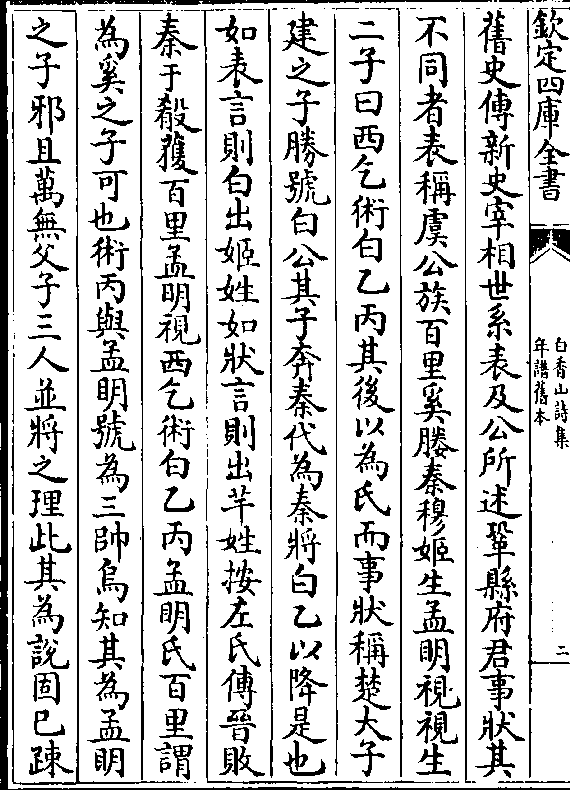 欽定四庫全書
白香山詩集
年譜舊本
二
舊史傳新史宰相世系表及公所述鞏縣府君事狀其
不同者表稱虞公族百里奚媵秦穆姬生孟明視視生
二子曰西乞術白乙丙其後以為氏而事狀稱楚大子
建之子勝號白公其子奔秦代為秦將白乙以降是也
如表言則白出姬姓如狀言則出芊姓按左氏傳晉敗
秦于殽獲百里孟明視西乞術白乙丙孟明氏百里謂
為奚之子可也術丙與孟明號為三帥烏知其為孟明
之子邪且萬無父子三人並將之理此其為說固已疎